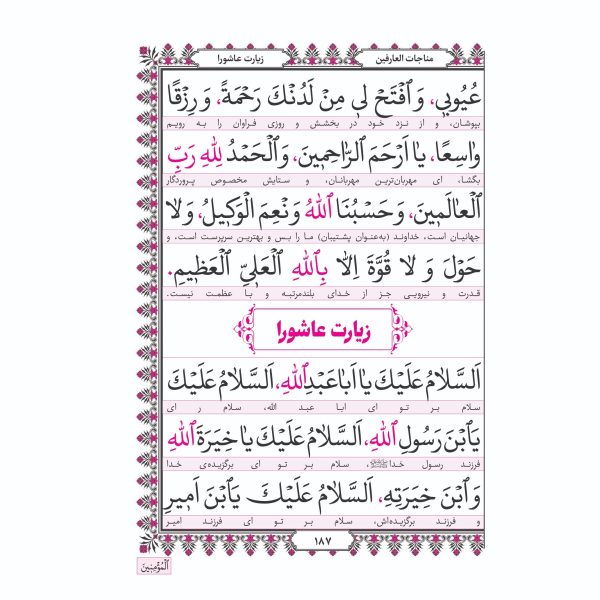 مناجات العارفین
زیارت عاشورا
عُیُوبِی، وَ ٱفْتَحْ لِی مِنْ لَدُنْكَ رَحْمَةً، وَ رِزْقًا
بپوشان، و از نزد خود در بخشش و روزی فراوان را به رویم
وٰاسِعًا، یٰا اَرْحَمَ ٱلرّٰاحِمِینَ، وَٱلْحَمْدُ لِلّٰهِ رَبِّ
بگشا، ای مهربان‌ترین مهربانان، و ستایش مخصوص پروردگار
ٱلْعٰالَمِینَ، وَ حَسْبُنَا ٱللهُ وَ نِعْمَ ٱلْوَکِیلُ، وَ لٰا
جهانیان است، خداوند (به‌عنوان پشتیبان) ما را بس و بهترین سرپرست است، و
حَوْلَ وَ لٰا قُوَّةَ اِلّٰا بِٱللهِ ٱلْعَلِیِّ ٱلْعَظِیمِ.
قدرت و نیرویی جز از خدای بلندمرتبه و با عظمت نیست.
زیارت عاشورا
اَلسَّلٰامُ عَلَیْكَ یٰا اَبٰا عَبْدِٱللهِ، اَلسَّلٰامُ عَلَیْكَ
سلام بر تو ای ابا عبد الله، سلام ر ای
یَٱبْنَ رَسُولِ ٱللهِ، اَلسَّلٰامُ عَلَیْكَ یٰا خِیَرَةَ ٱللهِ
فرزند رسول خدا ﷺ، سلام بر تو ای برگزیده‌ی خدا
وَ ٱبْنَ خِیَرَتِهِ، اَلسَّلٰامُ عَلَیْكَ یَٱبْنَ اَمِیرِ
و فرزند برگزیده‌اش، سلام بر تو ای فرزند امیر
۱۸۷
ٱلْمُؤْمِنِینَ